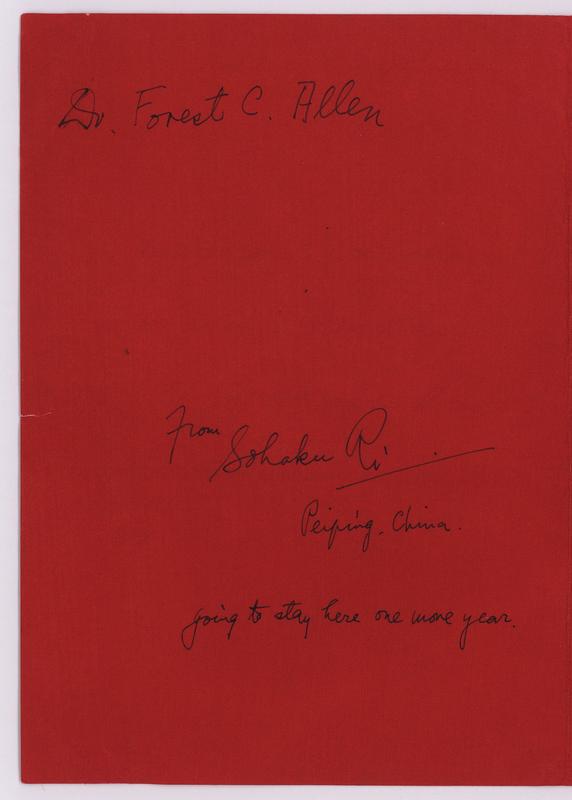 Dr. Forest C. Allen
From Sohaku Ri
Peiping, China.
going to stay here one more year.